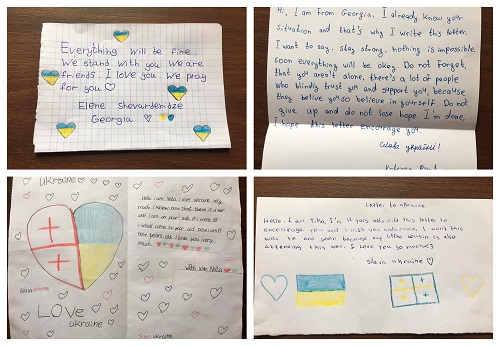 Everything will be fine
We stand with you we are
friends. I love you we pray
for you
Elene Shevardenidze
Georgia
Hi, I am from Georgia, I already know your
situation and that's why I write this letter.
I want to say, stay strong, nothing is impossible
soon everything will be okay. Do not forget,
that you aren't alone, there's a lot of people
who blindly trust you and support you, because
they belive you so believe in yourself. Do not
give up and do not lose hope. I'm done,
I hope this letter encourage you.
Слава україні!
ukraine
Love
ukraine
Hello I am Nita I love ukraine very
much I know that there is a war
and I am on your side
years old I love you very
much
with love Nita
Slava ukraine
Letter to ukraine
Hello, I am
encourage you and I wish you endurance. I want this
war to end soon because my little cousin is also
attending this war. I love you so much
Slava ukraine